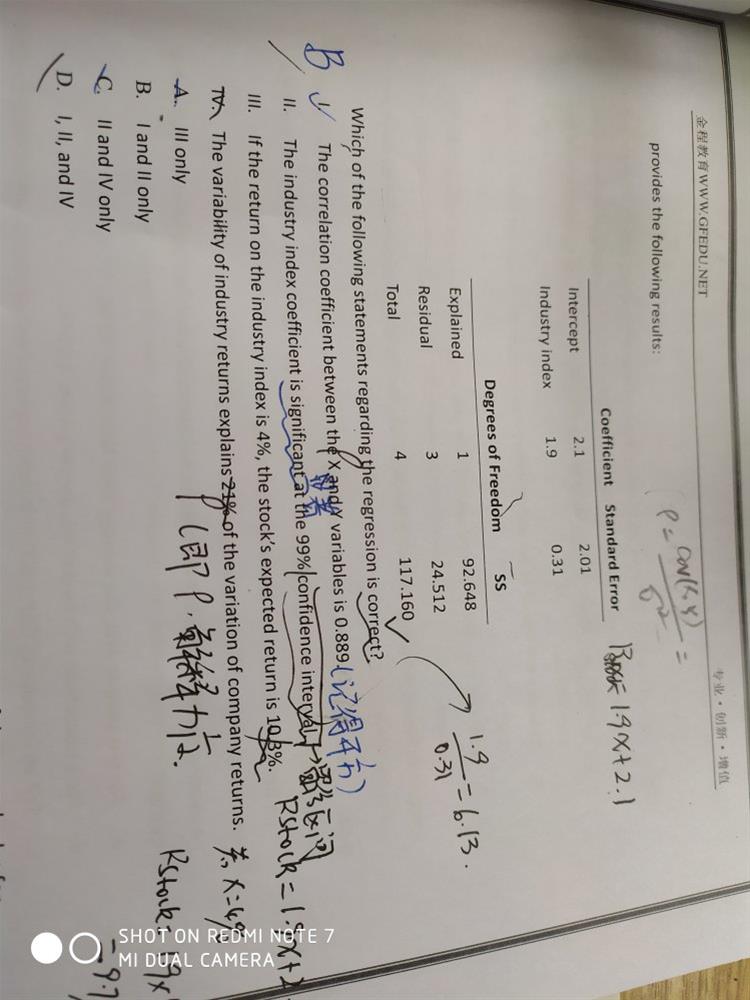 金程教育WWW.GFEDU.NET
专业·创新·增值
provides the following results:
Coefficient Standard Error
Intercept 2.1 2.01
Industry index 1.9 0.31
Degrees of Freedom SS
Explained 1 92.648
Residual 3 24.512
Total 4 117.160
1.9
0.31
=6.13.
Which of the following statements regarding the regression is correct?
B
I. The correlation coefficient between the X and Y variables is 0.889 (记得开方)
II. The industry index coefficient is significant at the 99% confidence interval
III. If the return on the industry index is 4%, the stock's expected return is 10.3%.
IV. The variability of industry returns explains 21% of the variation of company returns.
A. III only
B. I and II only
C. II and IV only
D. I, II, and IV
SHOT ON REDMI NOTE 7
MI DUAL CAMERA